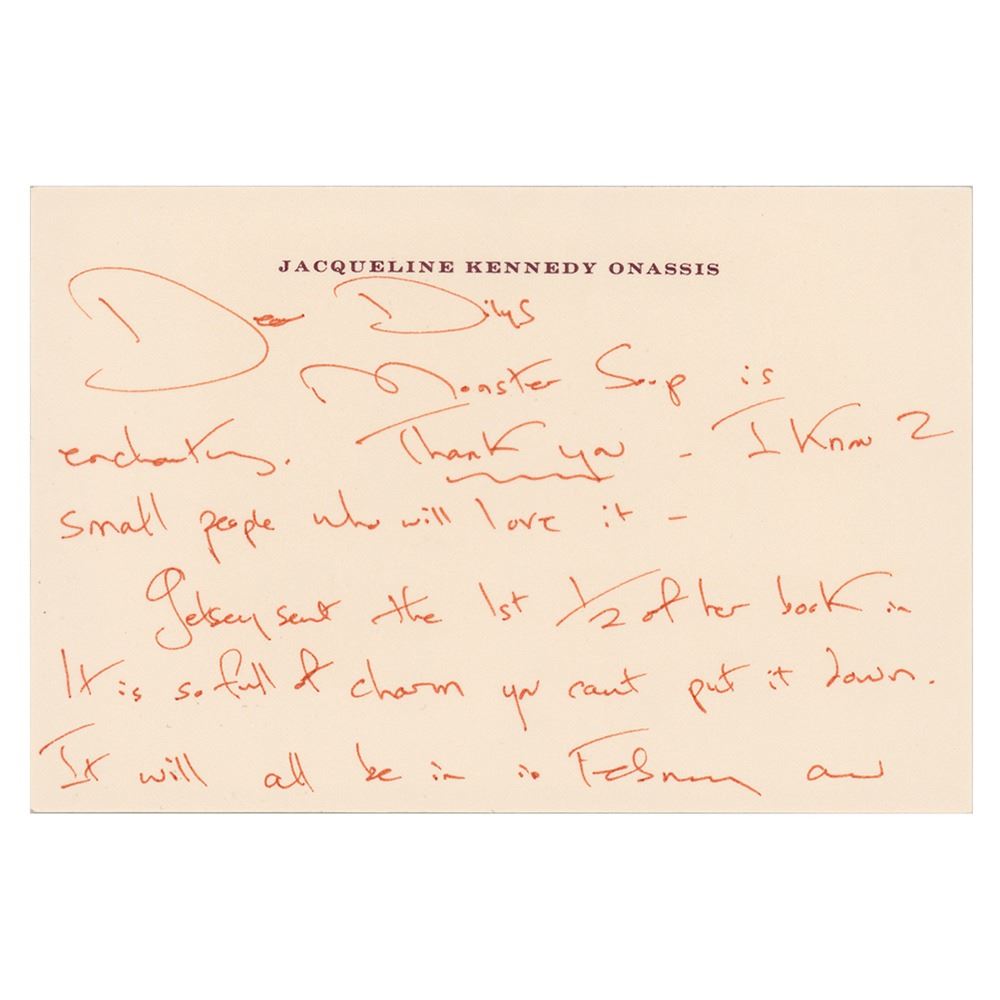 JACQUELINE KENNEDY ONASSIS
Dear Dilys
Monster Soup is
enchanting. Thank you – I know 2
small people who will love it –
Gelsey sent the 1st 1/2 of her book in
It is so full of charm you cant put it down.
It will all be in in February and